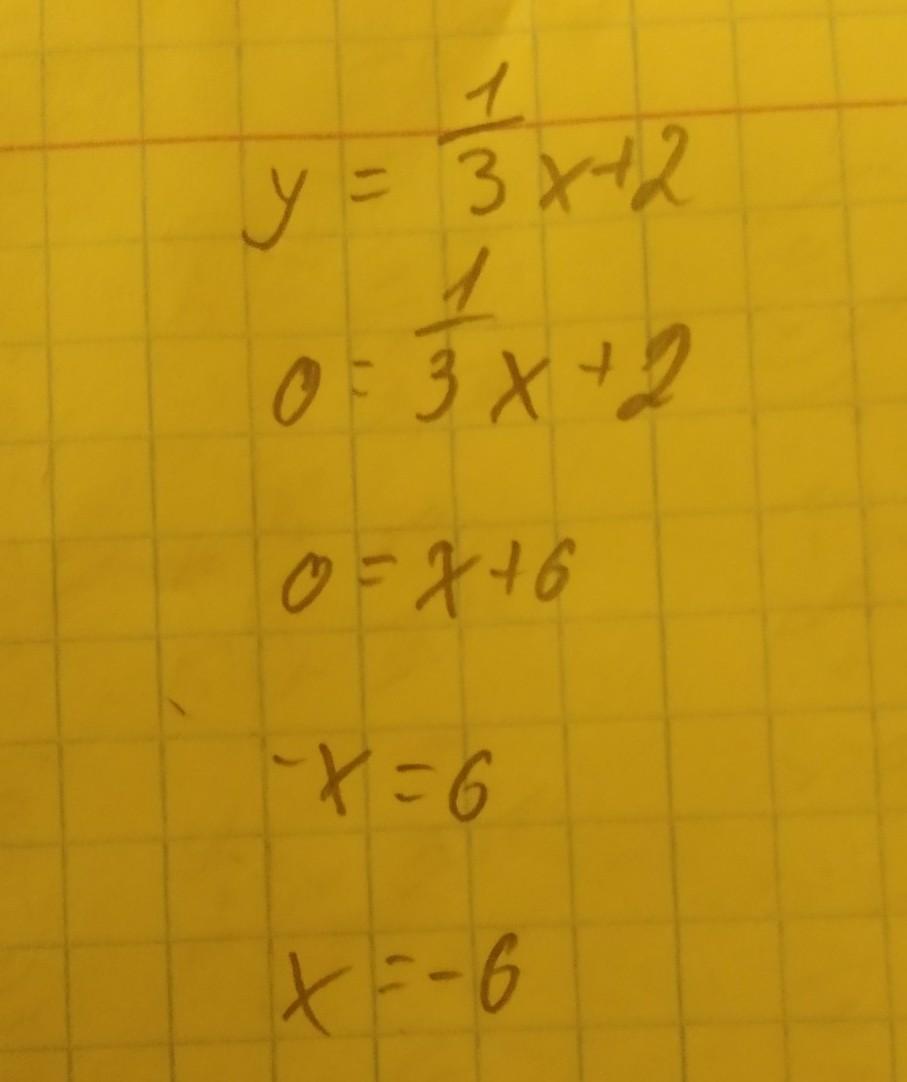 y = 1/3 x + 2
0 = 1/3 x + 2
0 = x + 6
-x = 6
x = -6